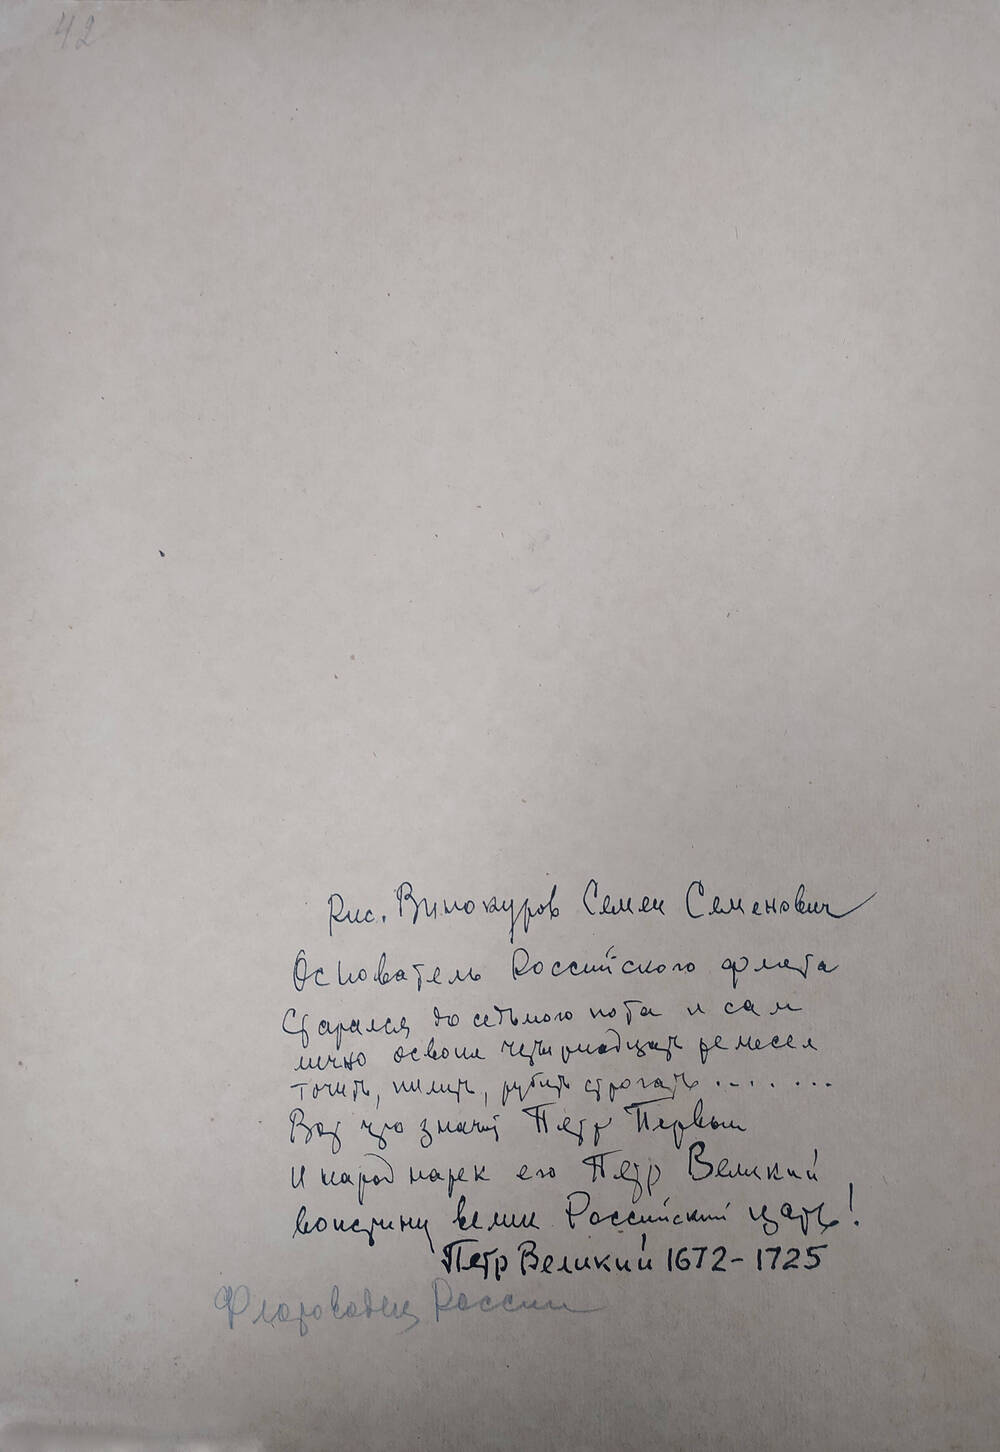 42
Рис. Винокуров Семен Семенович
Основатель Российского флота
Старался до седьмого пота и сам
лично освоил четырнадцать ремесел
точить, пилить, рубить строгать .......
Вот что значит Петр Первый
И народ нарек его Петр Великий
воистину велик Российский царь!
Петр Великий 1672-1725
Флотоводец России